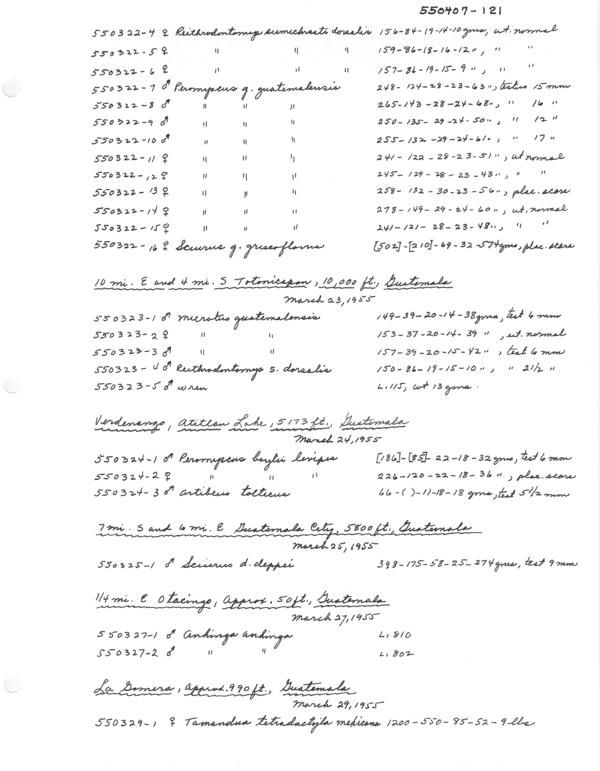 550407-121
550322-4 ♀ Reithrodontomys sumichrasti dorsalis 156-84-19-14-10 gms, ut. normal
550322-5 ♀ " " " 159-86-18-16-12 ", " "
550322-6 ♀ " " " 157-86-19-15-9 ", " "
550322-7 ♂ Peromyscus g. guatemalensis 248-124-28-23-63 "; testes 15 mm
550322-8 ♂ " " " 265-143-28-24-68 ", " 16 "
550322-9 ♂ " " " 250-135-29-24-50 ", " 12 "
550322-10 ♂ " " " 255-132-29-24-61 ", " 17 "
550322-11 ♀ " " " 241-122-28-23-51 ", ut normal
550322-12 ♀ " " " 245-129-28-23-43 ", " "
550322-13 ♀ " " " 258-132-30-23-56 ", plac. scars
550322-14 ♀ " " " 278-149-29-24-60 ", ut. normal
550322-15 ♀ " " " 241-121-28-23-48 ", " "
550322-16 ♀ Sciurus g. griseoflavus [502]-[210]-69-32-574 gms, plac. scars
10 mi. E and 4 mi. S Totonicapan, 10,000 ft., Guatemala
March 23, 1955
550323-1 ♂ Microtus guatemalensis 149-39-20-14-38 gms, test 6 mm
550323-2 ♀ " " 153-37-20-14-39 ", ut. normal
550323-3 ♂ " " 157-39-20-15-42 ", test 6 mm
550323-4 ♂ Reithrodontomys s. dorsalis 150-86-19-15-10 ", " 2 1/2 "
550323-5 ♂ wren L. 115, wt 13 gms.
Verdenango, Atitlan Lake, 5173 ft., Guatemala
March 24, 1955
550324-1 ♂ Peromyscus boylii levipes [186]-[85]-22-18-32 gms, test 6 mm
550324-2 ♀ " " " 226-120-22-18-36 ", plac. scars
550324-3 ♂ Artibeus tolticus 66-( )-11-18-18 gms, test 5 1/2 mm
7 mi. S and 6 mi. E Guatemala City, 5800 ft., Guatemala
March 25, 1955
550325-1 ♂ Sciurus d. deppei 398-175-58-25-274 gms, test 9 mm
1/4 mi. E Otacingo, Approx. 50 ft., Guatemala
March 27, 1955
550327-1 ♂ Anhinga anhinga L. 810
550327-2 ♂ " " L. 802
La Gomera, Approx. 990 ft., Guatemala
March 29, 1955
550329-1 ♀ Tamandua tetradactyla mexicana 1200-550-85-52-9 lbs